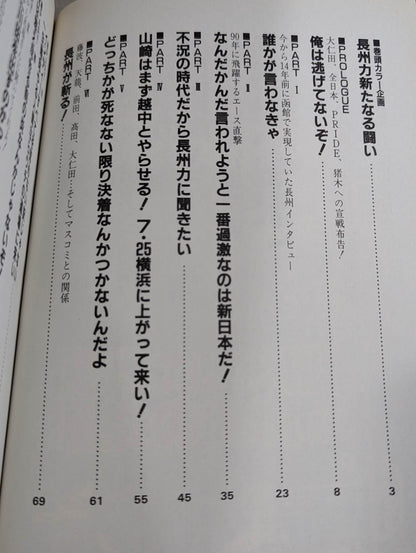 ■巻頭カラー企画
長州力新たなる闘い
3
■PROLOGUE
俺は逃げてないぞ！
大仁田、全日本、PRIDE、猪木への宣戦布告！
8
■PART Ⅰ
誰かが言わなきゃ
今から14年前に函館で実現していた長州インタビュー
23
■PART Ⅱ
なんだかんだ言われようと一番過激なのは新日本だ！
90年に飛躍するエース直撃
35
■PART Ⅲ
不況の時代だから長州力に聞きたい
45
■PART Ⅳ
山崎はまず越中とやらせる！7・25横浜に上がって来い！
55
■PART Ⅴ
どっちかが死なない限り決着なんかつかないんだよ
61
■PART Ⅵ
長州が斬る！
藤波、天龍、前田、高田、大仁田…そしてマスコミとの関係
69